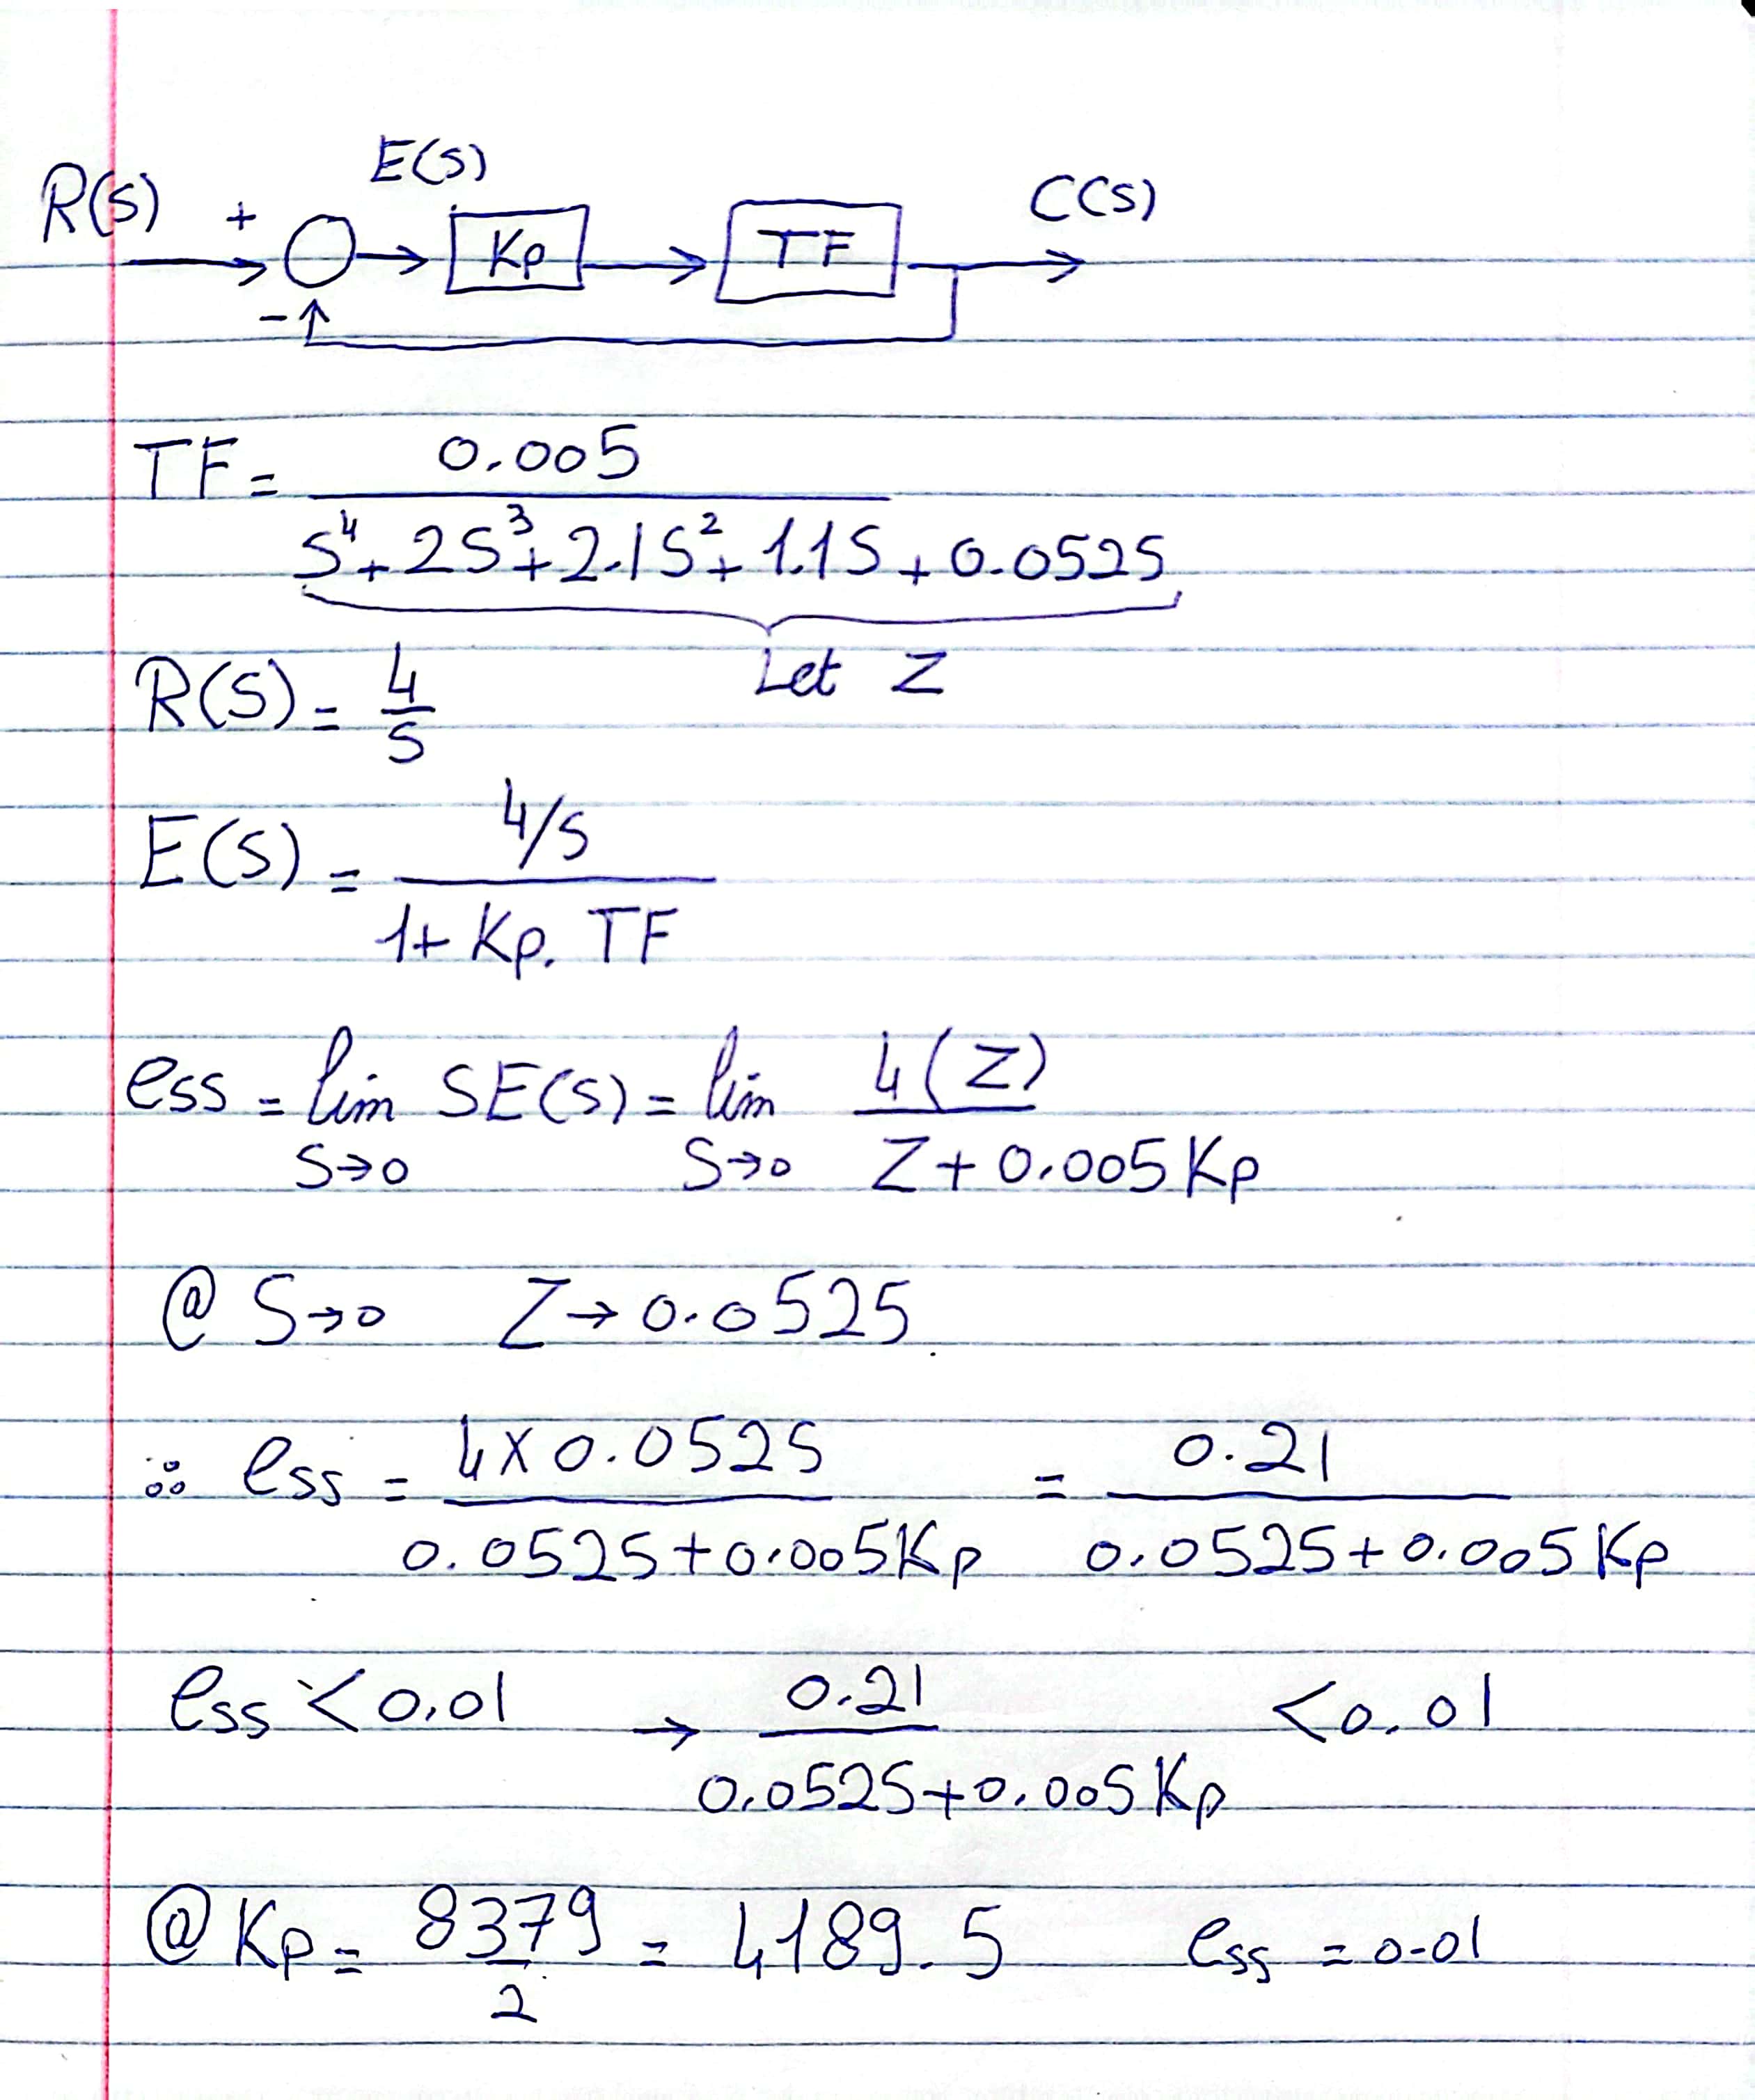 E(S)
R(S) + C(S)
Kp TF
-
TF = 0.005 / S⁴ + 2S³ + 2.1S² + 1.1S + 0.0525
Let Z
R(S) = 4/S
E(S) = 4/S / 1+ Kp. TF
ess = lim S→0 SE(S) = lim S→0 4(Z) / Z + 0.005Kp
@ S→0 Z→0.0525
∴ ess = 4×0.0525 / 0.0525+0.005Kp = 0.21 / 0.0525+0.005Kp
ess < 0.01 → 0.21 / 0.0525+0.005Kp < 0.01
@ Kp = 8379/2 = 4189.5 ess = 0.01